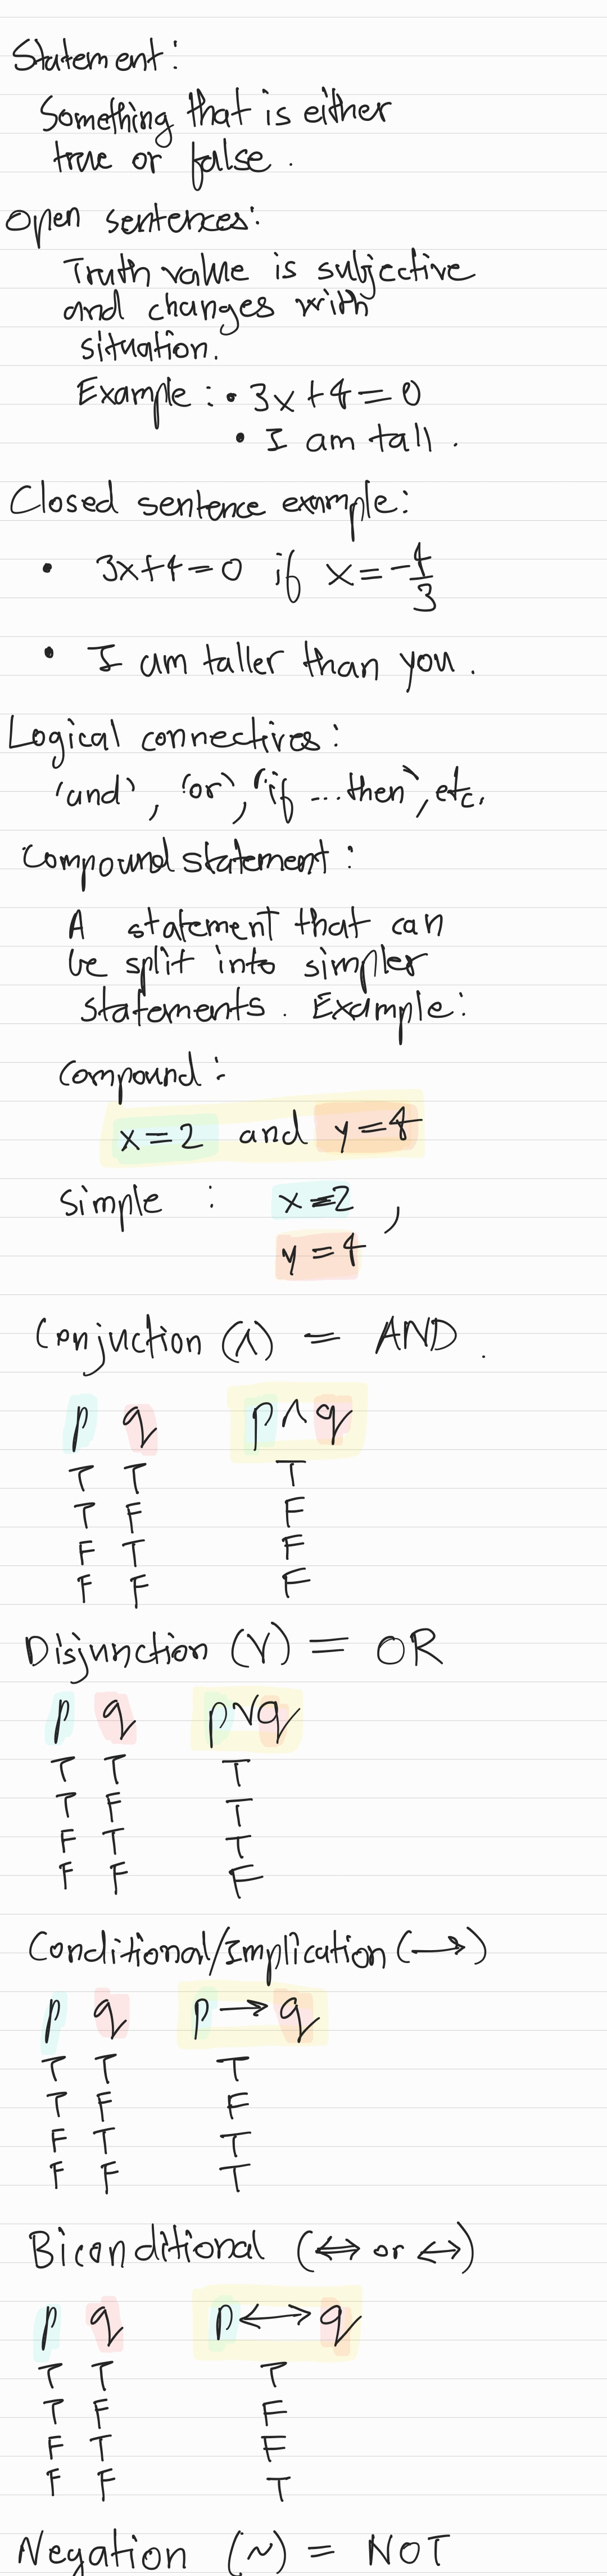 Statement:
Something that is either
true or false.
Open sentences:
Truth value is subjective
and changes with
situation.
Example: • 3x+4=0
• I am tall.
Closed sentence example:
• 3x+4=0 if x=-4/3
• I am taller than you.
Logical connectives:
'and', 'or', 'if ... then', etc.
Compound statement:
A statement that can
be split into simpler
statements. Example:
Compound:
x=2 and y=4
Simple : x=2,
y=4
Conjuction (∧) = AND.
p q p∧q
T T T
T F F
F T F
F F F
Disjunction (∨) = OR
p q p∨q
T T T
T F T
F T T
F F F
Conditional/Implication (→)
p q p→q
T T T
T F F
F T T
F F T
Biconditional (⇔ or ↔)
p q p↔q
T T T
T F F
F T F
F F T
Negation (~) = NOT